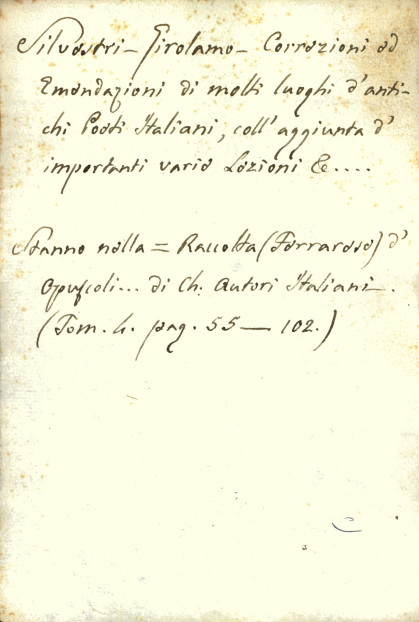 Silvestri - Girolamo - Correzioni ed
Emendazioni di molti luoghi d'anti-
chi Poeti Italiani, coll'aggiunta d'
importanti varie Lezioni &....
Stanno nella = Raccolta (Ferrarese) d'
Opuscoli... di Ch. Autori Italiani.
(Tom. 4. pag. 55 — 102.)